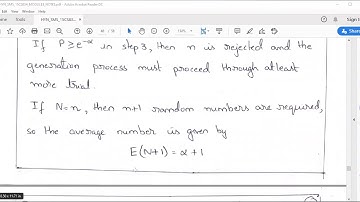 Home Tools
If P≥e^-α in step 3, then n is rejected and the
generation process must proceed through atleast
more trial.
If N=n, then n+1 random numbers are required,
so the average number is given by
E(N+1) = α + 1